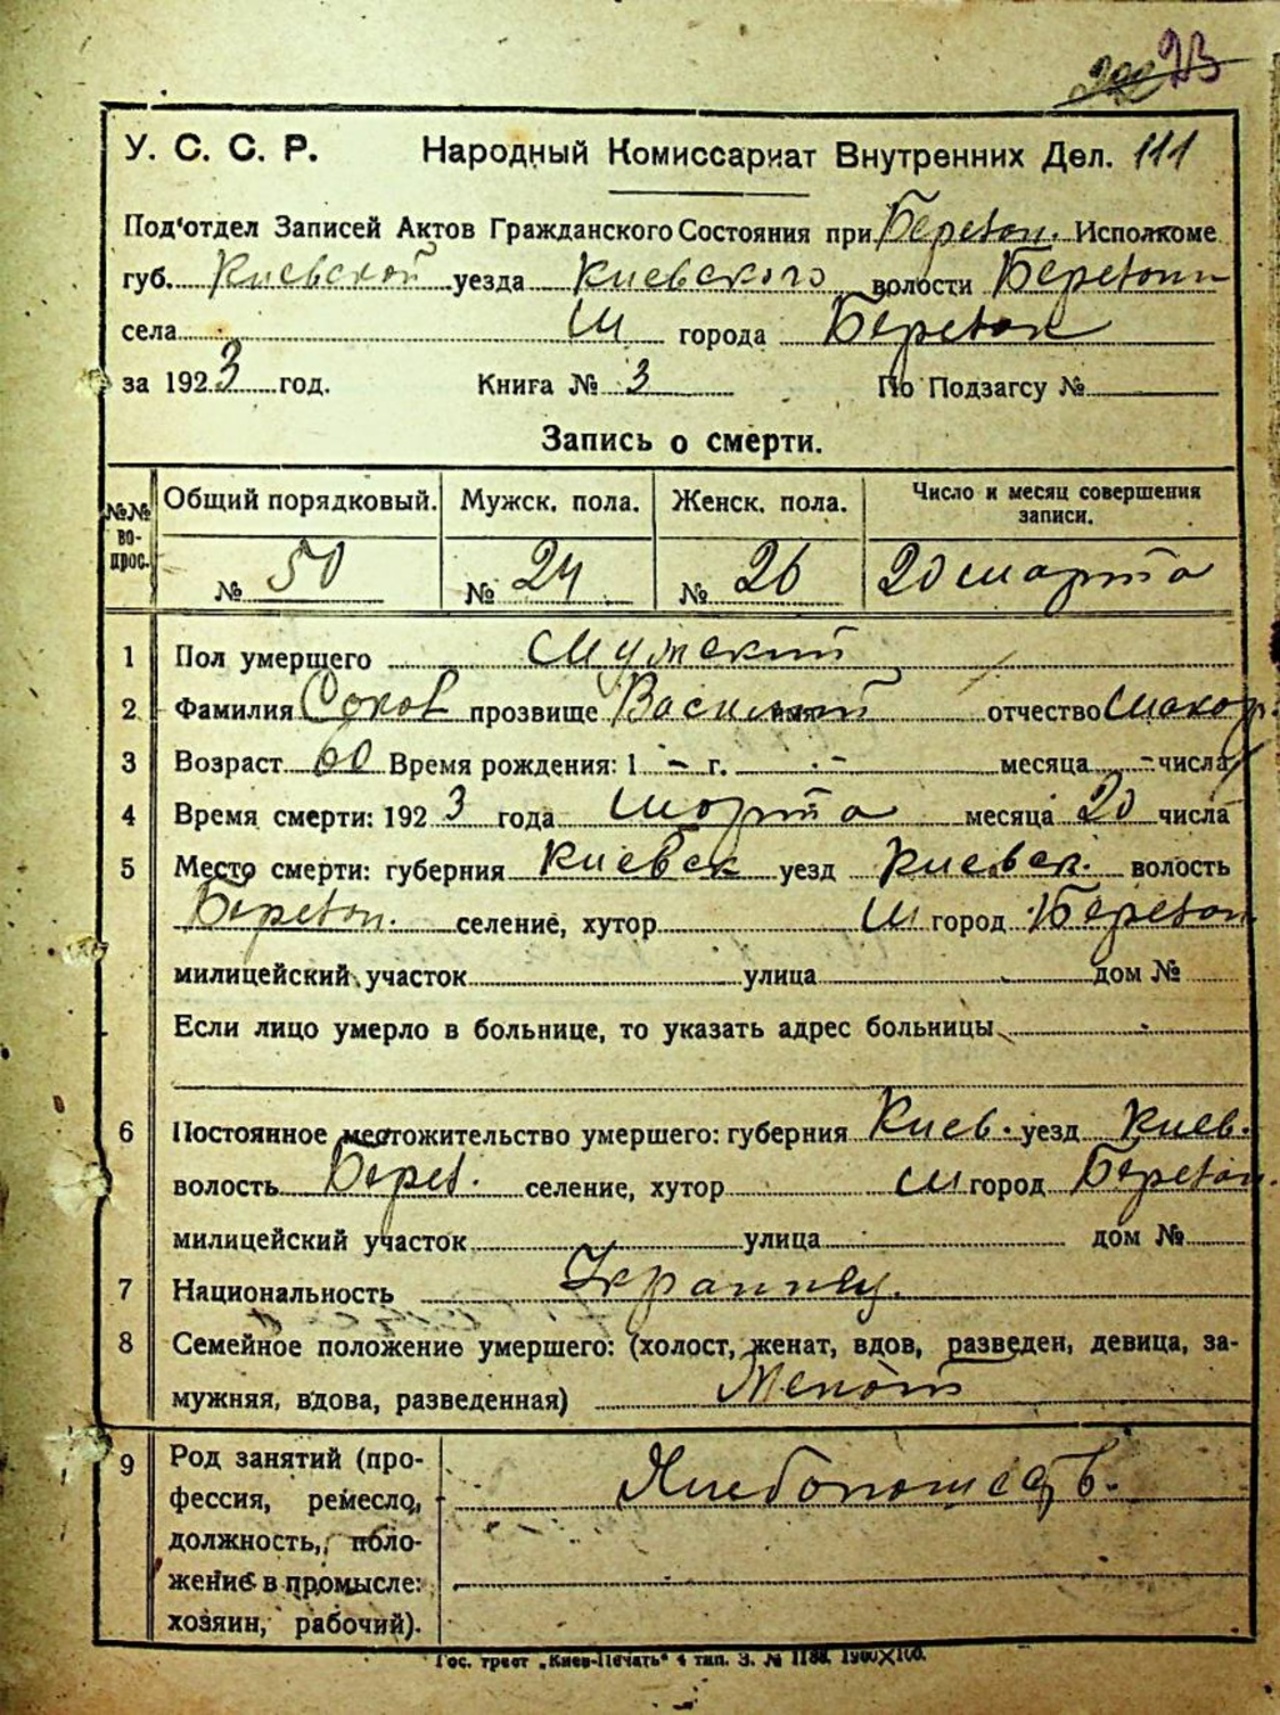 23
У. С. С. Р. Народный Комиссариат Внутренних Дел. 111
Под'отдел Записей Актов Гражданского Состояния при Исполкоме
губ. Киевской уезда Киевского волости
села м города
за 1923 год. Книга № 3 По Подзагсу №
Запись о смерти.
№№ вопрос. Общий порядковый. Мужск. пола. Женск. пола. Число и месяц совершения записи.
№ 50 № 24 № 26 20 марта
1 Пол умершего Мужский
2 Фамилия прозвище Василий имя отчество
3 Возраст 60 Время рождения: 1 - г. - месяца - числа
4 Время смерти: 1923 года марта месяца 20 числа
5 Место смерти: губерния Киевск уезд Киевск. волость
селение, хутор м город
милицейский участок улица дом №
Если лицо умерло в больнице, то указать адрес больницы
6 Постоянное местожительство умершего: губерния Киев. уезд Киев.
волость Берез. селение, хутор м город
милицейский участок улица дом №
7 Национальность Украинец.
8 Семейное положение умершего: (холост, женат, вдов, разведен, девица, за-
мужняя, вдова, разведенная) Женат
9 Род занятий (про-
фессия, ремесло,
должность, поло-
жение в промысле:
хозяин, рабочий).
Хлебопашеств.
Гос. трест „Киев-Печать" 4 тип. З. № 1188. 1900X100.